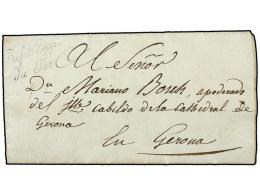 Al Señor
Dn Mariano Bosch, apoderado
del Iltre Cabildo de la Cathedral De
Gerona
En Gerona